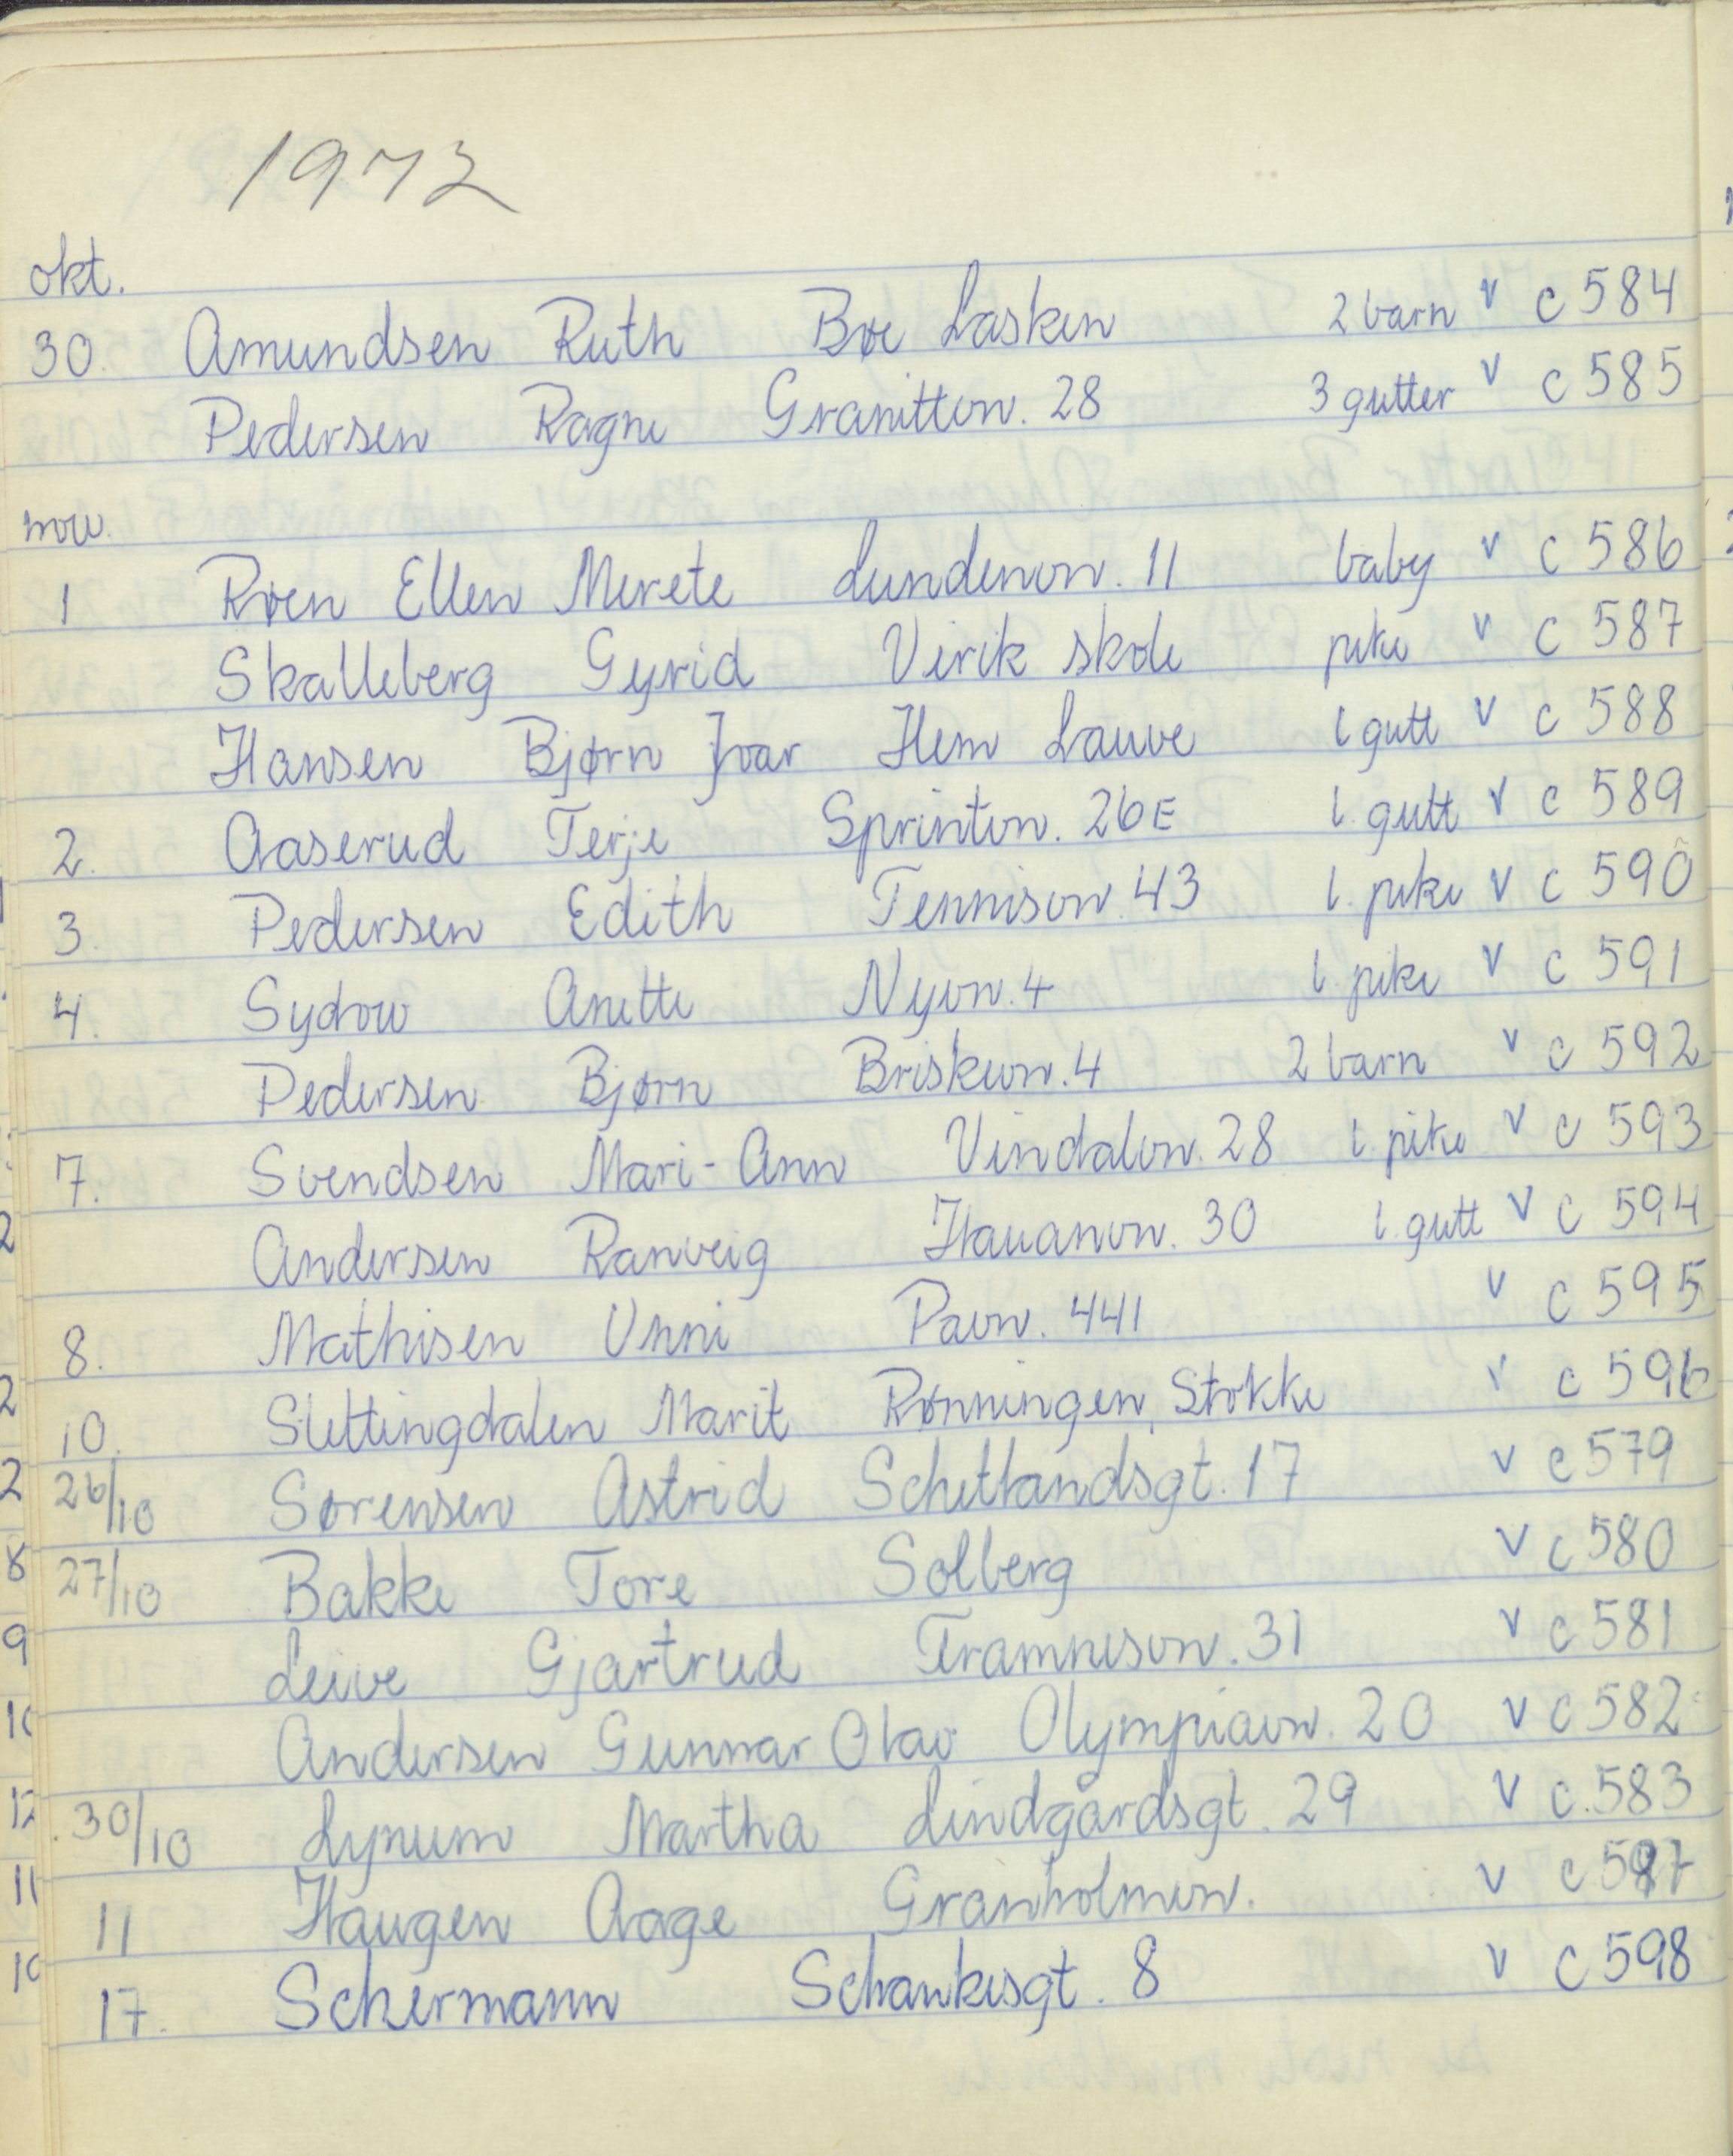 1972
okt.
30. Amundsen Ruth Bøe Lasken 2 barn v c 584
Pedersen Ragne Granittvn. 28 3 gutter v c 585
nov.
1 Roen Ellen Merete Lundenvn. 11 baby v c 586
Skalleberg Gyrid Virik skole pike v c 587
Hansen Bjørn Ivar Hem Lauve 1 gutt v c 588
2. Aaserud Terje Sprintvn. 26E 1. gutt v c 589
3. Pedersen Edith Tennisvn. 43 1. pike v c 590
4. Sydow Anette Nyvn. 4 1. pike v c 591
Pedersen Bjørn Briskevn. 4 2 barn v c 592
7. Svendsen Mari-Ann Vindalvn. 28 1. pike v c 593
Andersen Ranveig Hauanvn. 30 1. gutt v c 594
8. Mathisen Unni Pavn. 441 v c 595
10. Slettingdalen Marit Rønningen, Stokke v c 596
26/10 Sørensen Astrid Schetlandsgt. 17 v c 579
27/10 Bakke Tore Solberg v c 580
Leive Gjartrud Framnesvn. 31 v c 581
Andersen Gunnar Olav Olympiavn. 20 v c 582
30/10 Lynum Martha Lindgårdsgt. 29 v c. 583
11 Haugen Aage Granholmen. v c 597
17. Schermann Schankesgt. 8 v c 598